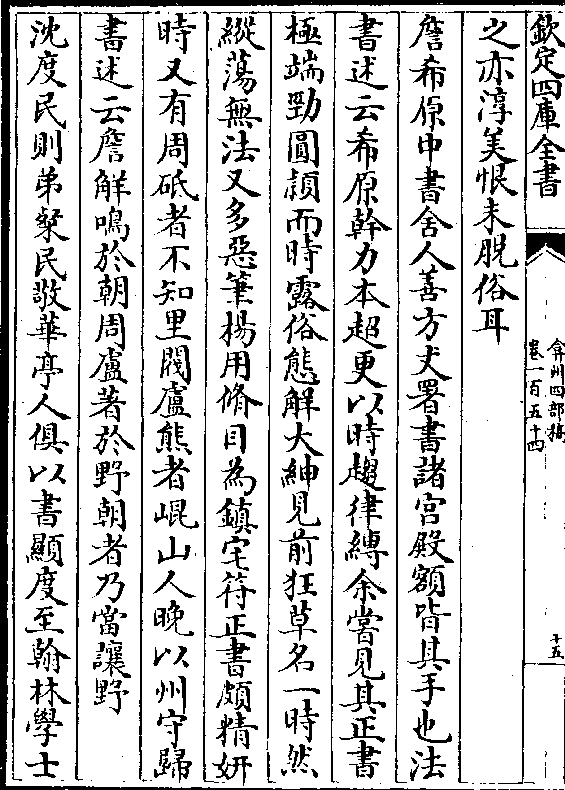 欽定四庫全書
弇州四部稿
卷一百五十四
十五
之亦淳美恨未脫俗耳
詹希原中書舍人善方丈署書諸宮殿額皆其手也法
書述云希原幹力本超更以時趨律縛余嘗見其正書
極端勁圓熟而時露俗態解大紳見前狂草名一時然
縱蕩無法又多惡筆楊用脩目為鎮宅符正書頗精妍
時又有周砥者不知里閥盧熊者崐山人晚以州守歸
書述云詹解鳴於朝周盧著於野朝者乃當讓野
沈度民則弟粲民敬華亭人俱以書顯度至翰林學士